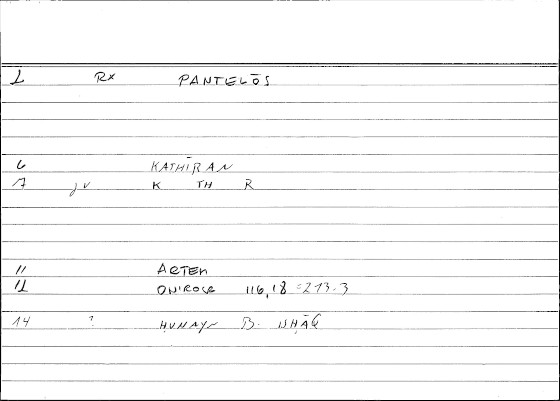 1 RX PANTELŌS
6 KATHĪRAN
7 gv K TH R
11 ARTEM
12 ONIROCR 116,18 = 213.3
14 ? ḤUNAYN B. ISḤĀQ